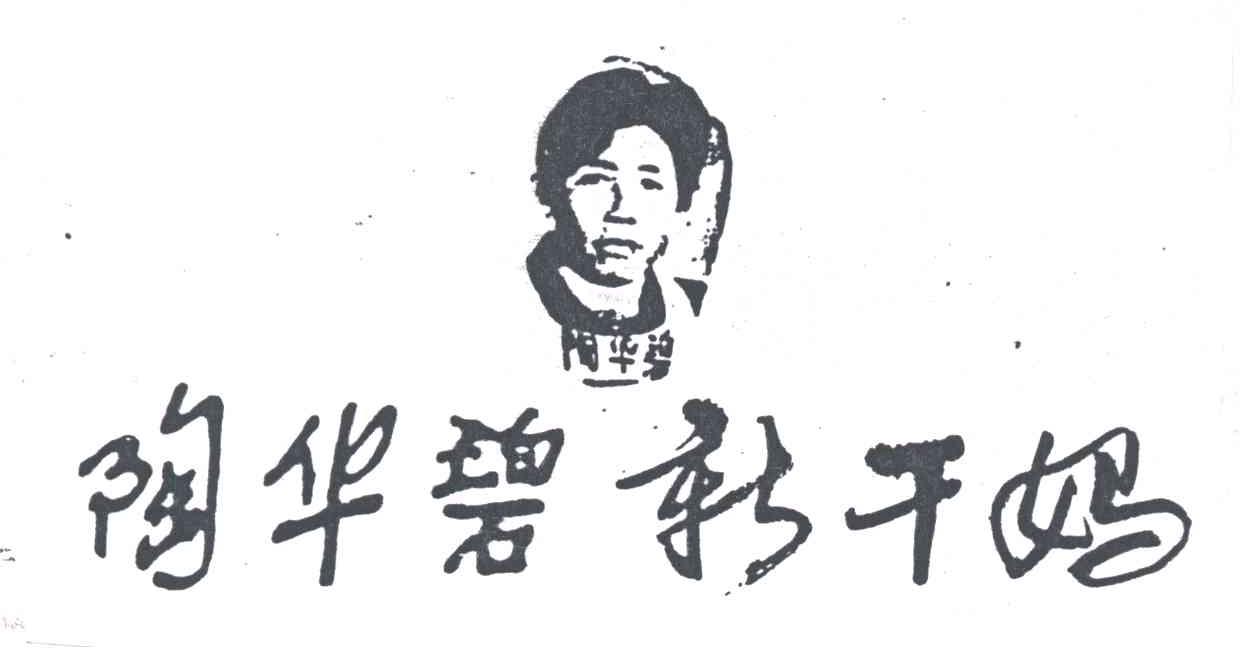 陶华碧
陶华碧新干妈